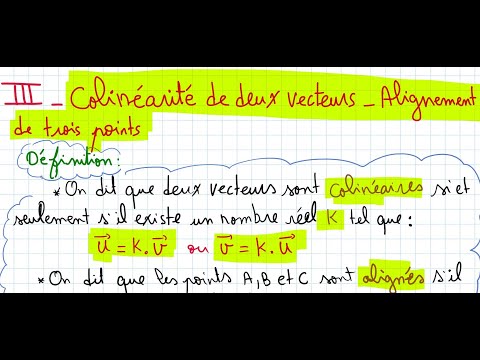 III - Colinéarité de deux vecteurs - Alignement
de trois points
Définition:
* On dit que deux vecteurs sont colinéaires si et
seulement s'il existe un nombre réel K tel que:
u⃗ = K.v⃗ ou v⃗ = K.u⃗
* On dit que les points A, B et C sont alignés s'il